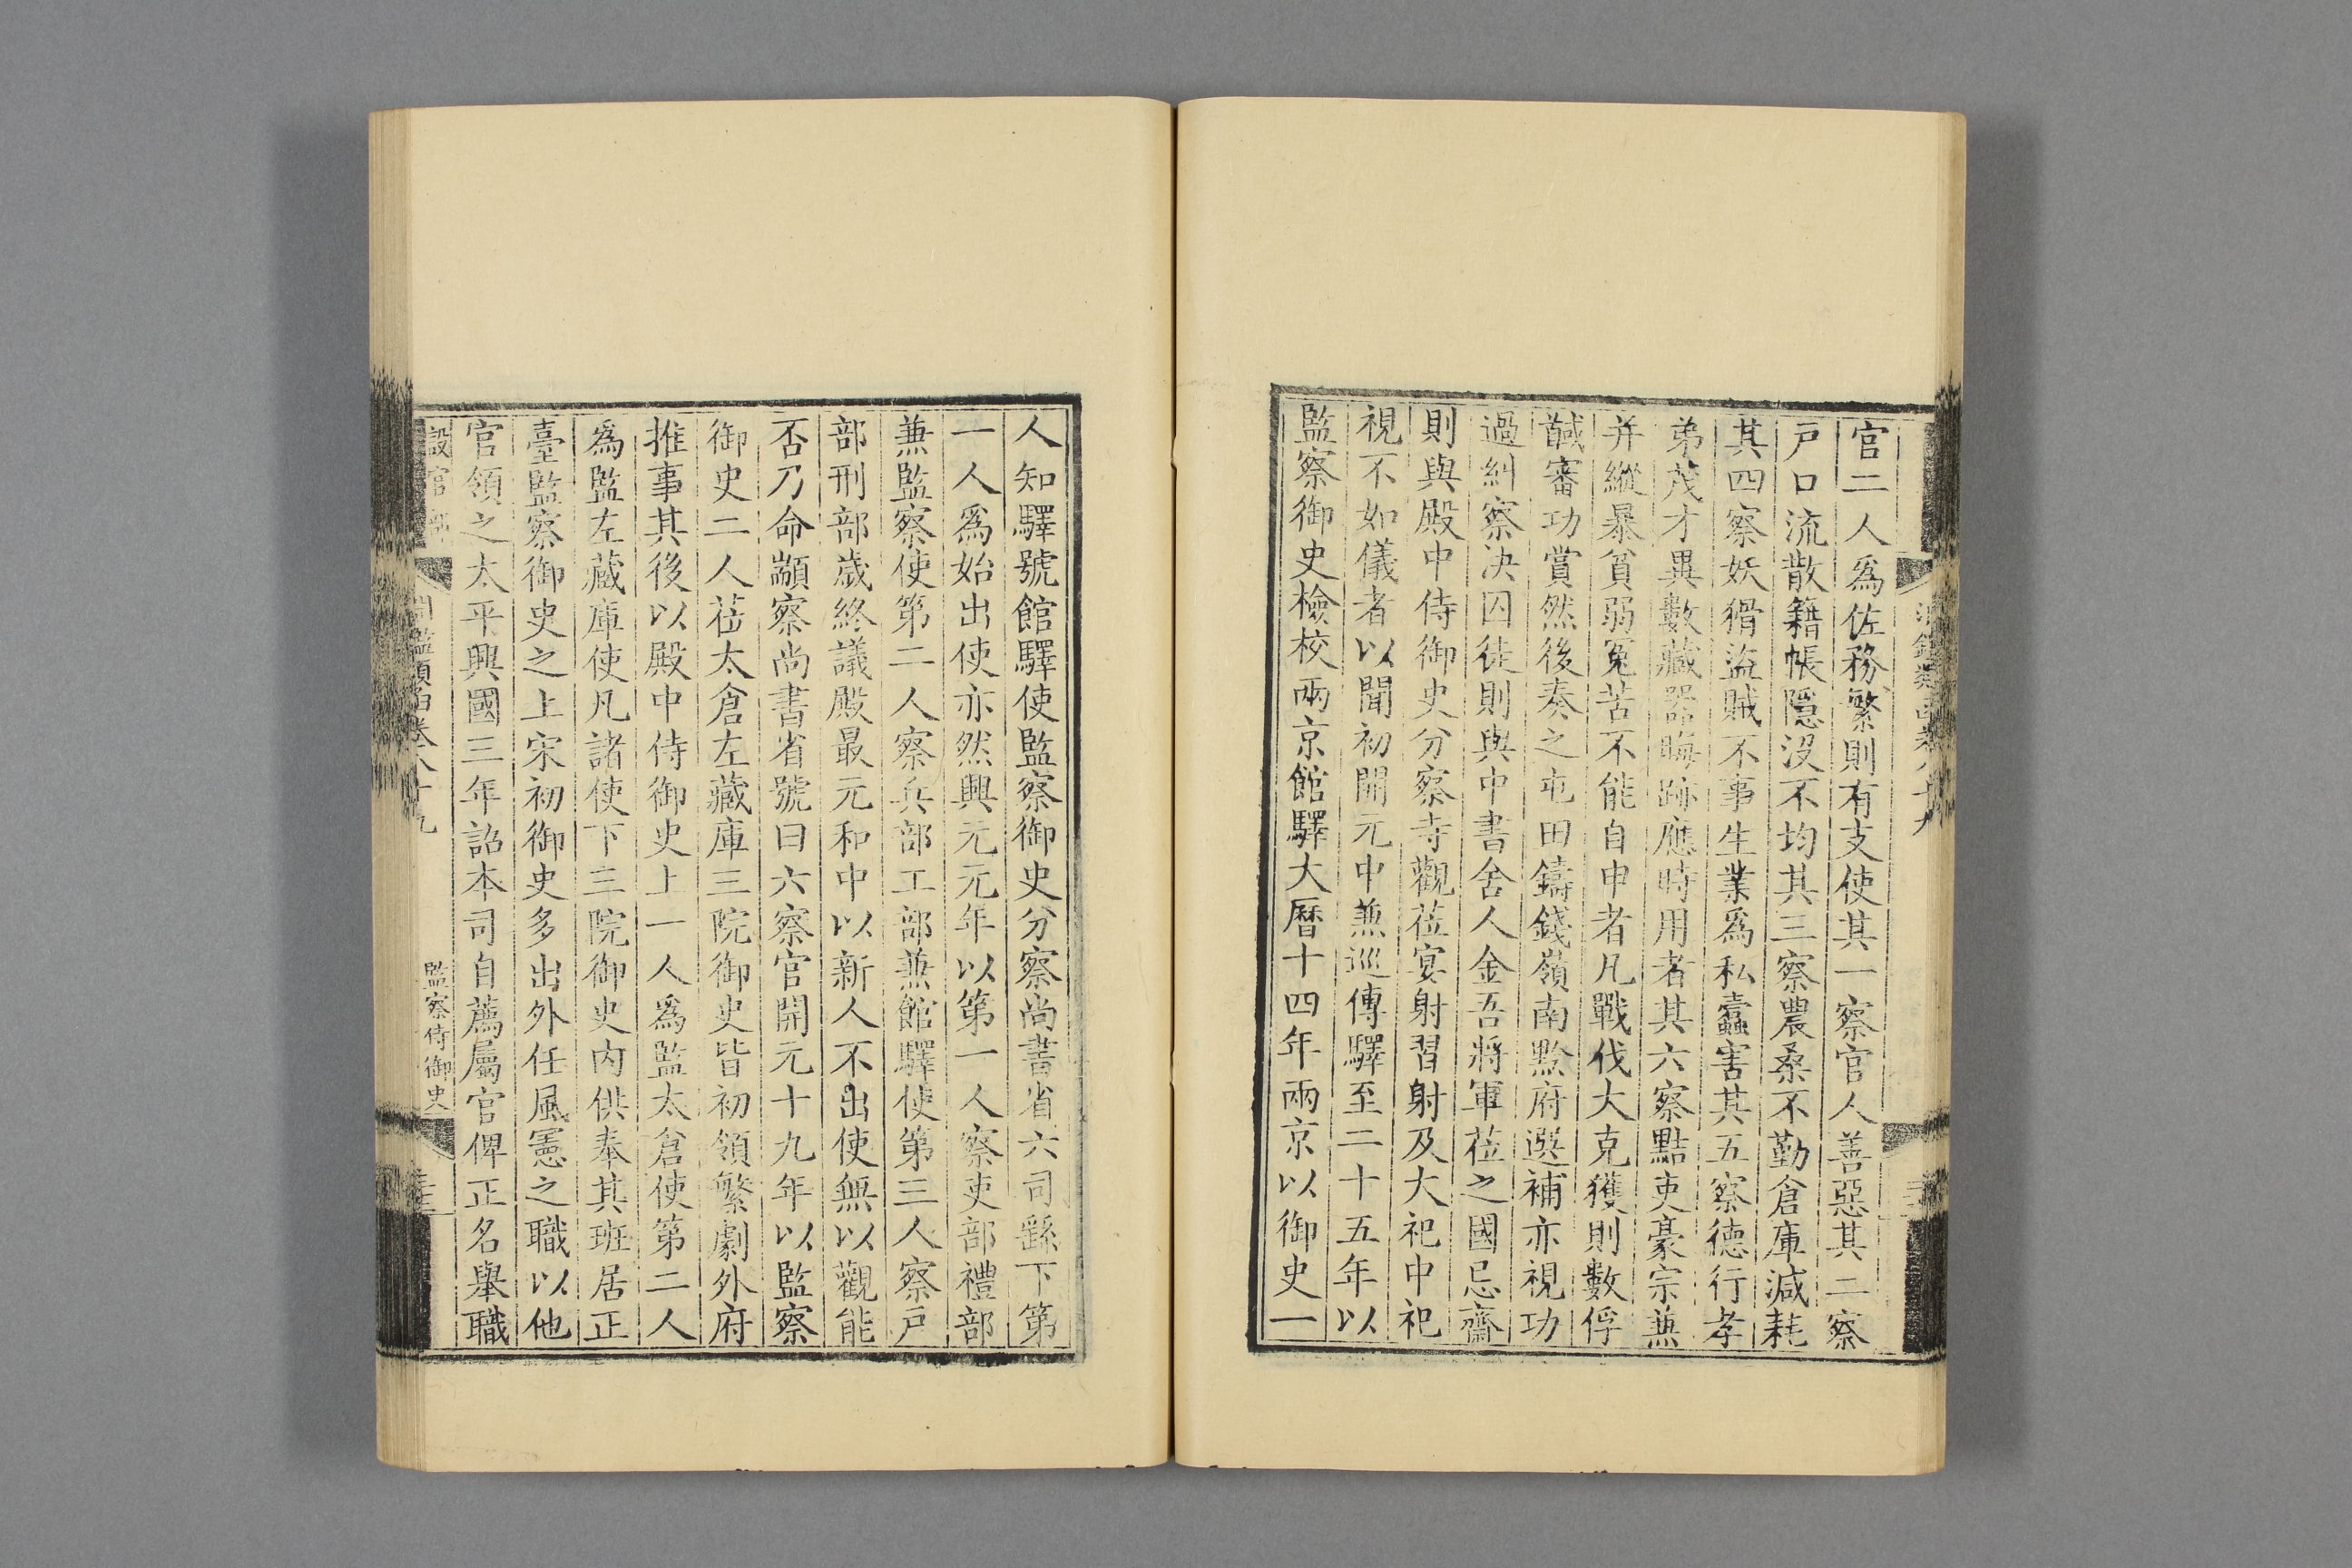 官二人爲佐務繁則有支使其一察官人善惡其二察
戸口流散籍帳隱沒不均其三察農桑不勤倉庫減耗
其四察妖猾盜賊不事生業爲私蠹害其五察德行孝
弟茂才異數藏器晦跡應時用者其六察黠吏豪宗兼
并縱暴貧弱冤苦不能自申者凡戰伐大克獲則數俘
馘審功賞然後奏之屯田鑄錢嶺南黔府選補亦視功
過糾察決囚徒則與中書舍人金吾將軍莅之國忌齋
則與殿中侍御史分察寺觀莅宴射習射及大祀中祀
視不如儀者以聞初開元中兼巡傳驛至二十五年以
監察御史檢校兩京館驛大曆十四年兩京以御史一
人知驛號館驛使監察御史分察尚書省六司繇下第
一人爲始出使亦然興元元年以第一人察吏部禮部
兼監察使第二人察兵部工部兼館驛使第三人察戸
部刑部歲終議殿最元和中以新人不出使無以觀能
否乃命顓察尚書省號曰六察官開元十九年以監察
御史二人莅太倉左藏庫三院御史皆初領繁劇外府
推事其後以殿中侍御史上一人爲監太倉使第二人
爲監左藏庫使凡諸使下三院御史內供奉其班居正
臺監察御史之上宋初御史多出外任風憲之職以他
官領之太平興國三年詔本司自薦屬官俾正名舉職
設官部
監察侍御史